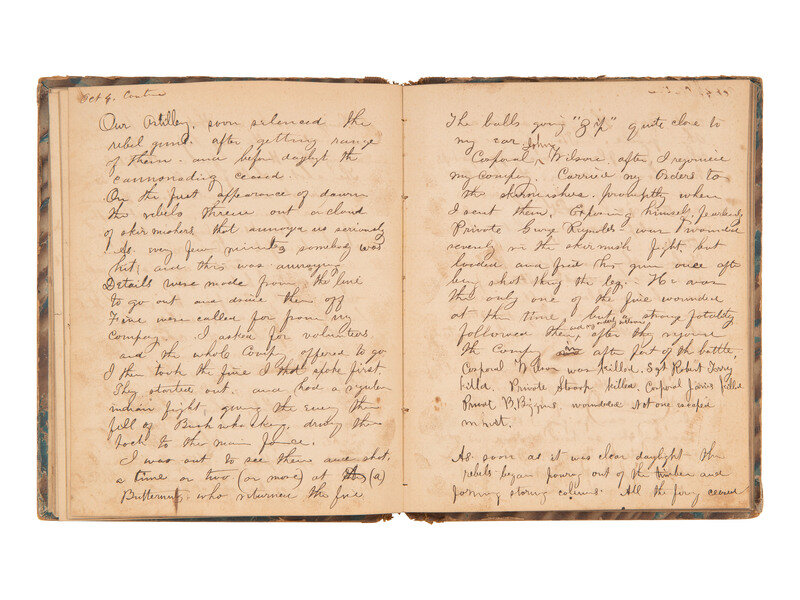 Oct 4. Contin
Our Artillery, soon silenced the
rebel guns. after getting range
of them. and before daylight the
cannonading ceased.
On the first appearance of dawn
the rebels threw out a cloud
of skirmishers that annoyed us seriously
very few minutes somebody was
hit, and this was annoying
Details were made from the line
to go out and drive them off
Five were called for from my
Company. I asked for volunteers
and the whole Comp. offered to go
I then took the five I had spoke first.
They started out. and had a regular
indian fight, giving the enemy their
fill of Bushwhacking. driving them
back to their main force.
I was out to see them and shot,
a time or two (or more) at (a)
Butternut, who returned the fire
The balls going "Zip" quite close to
my ear
Corporal John Wilson after I rejoined
my Company. Carried my orders to
the skirmishers. promptly when
I sent them. Exposing himself fearlessly
Private George Reynolds was wounded
severely in the skirmish fight, but
loaded and fired his gun once after
being shot thru the leg. He was
the only one of the five wounded
at the time, but a strange fatality
followed them, after they rejoined
the Comp. after part of the battle,
Corporal Wilson was killed. Sgt Robert Terry
killed. Private Stroop killed, Corporal Jarvis killed
Private B. Biggins, wounded Not one escaped
unhurt.
As soon as it was clear daylight the
rebels began pouring out of the timber and
forming storming columns. All the firing ceased